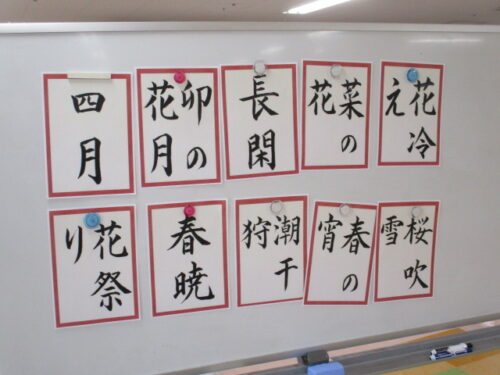 四月
卯の
花月
長閑
菜の
花
花冷
え
花祭
り
春暁
潮干
狩
春の
宵
桜吹
雪